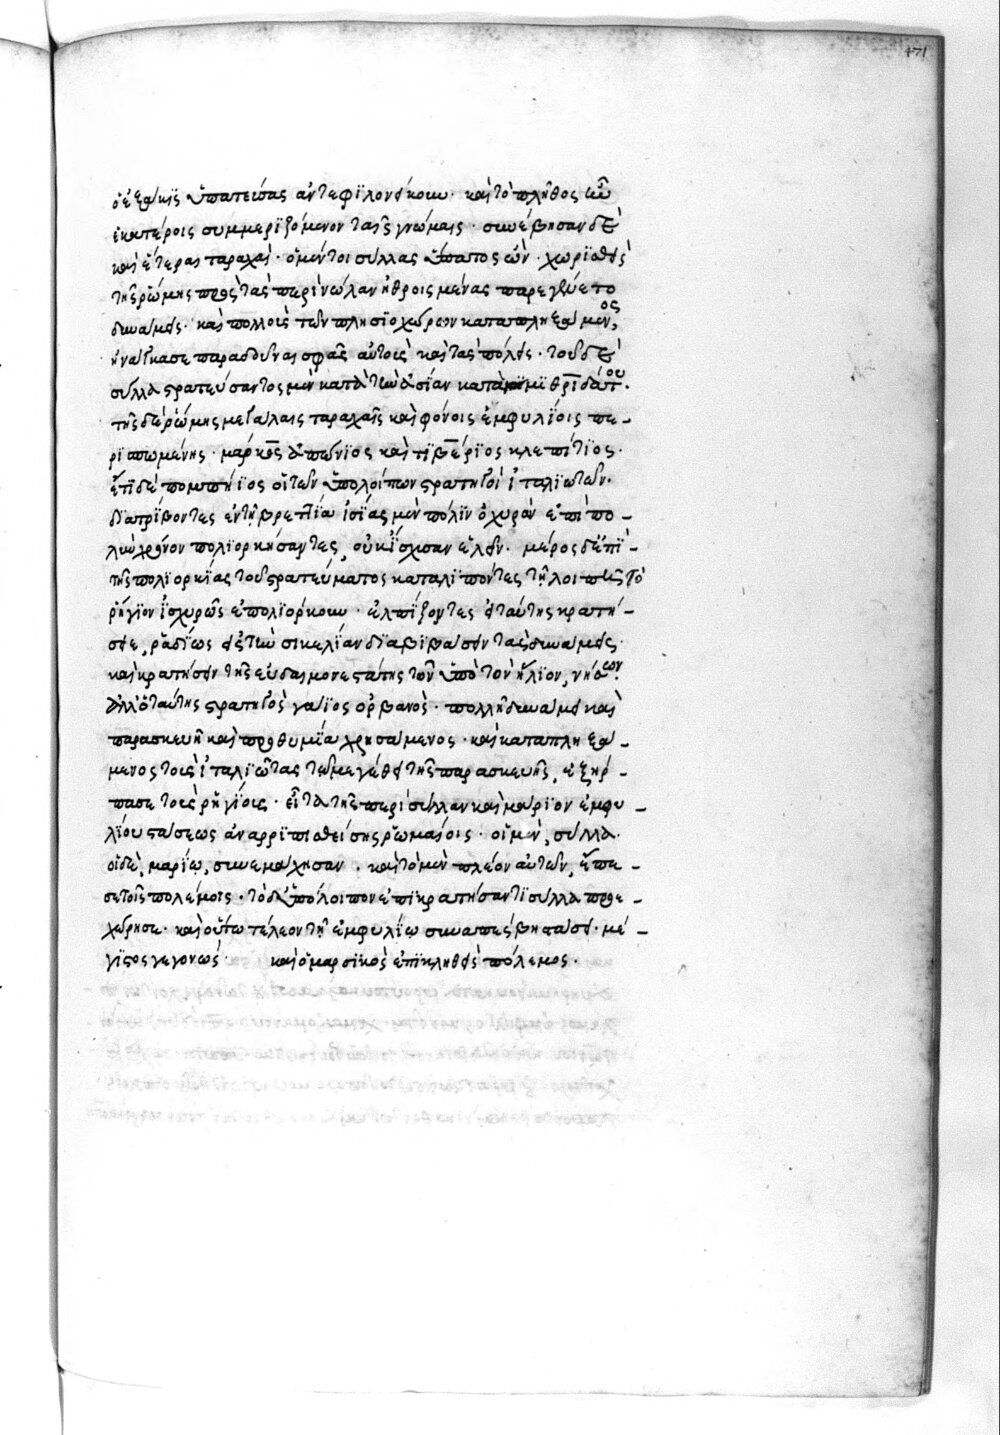 471
ὁ ἑξάκις ὑπατεύσας ἀντεφιλονείκουν· καὶ τὸ πλῆθος σὺν
ἑκατέροις συμμεριζόμενον ταῖς γνώμαις· συνέβησαν δὲ
καὶ ἕτεραι ταραχαί· ὁ μέντοι σύλλας ὕπατος ὢν· χωρισθεὶς
τῆς ῥώμης πρὸς τὰς περὶ νῶλαν ἠθροισμένας παρεγένετο
δυνάμεις· καὶ πολλοὺς τῶν πλησιοχώρων καταπληξάμενος,
ἠνάγκασε παραδοῦναι σφᾶς αὐτοὺς καὶ τὰς πόλεις· τοῦ δὲ
σύλλα στρατεύσαντος μὲν κατὰ τὴν ἀσίαν κατὰ μιθριδάτου·
τῆς δὲ ῥώμης μεγάλαις ταραχαῖς καὶ φόνοις ἐμφυλίοις πε-
ρισπωμένης· μάρκος ἀπώνιος καὶ τιβέριος κλεπίτιος·
ἔτι δὲ πομπήιος οἱ τῶν ὑπολοίπων στρατηγοὶ ἰταλιωτῶν·
διατρίβοντες ἐν τῇ βρεττίᾳ ἰσίας μὲν πόλιν ὀχυρὰν ἐπὶ πο-
λὺν χρόνον πολιορκήσαντες, οὐκ ἴσχυσαν ἑλεῖν· μέρος δ' ἐπὶ
τῆς πολιορκίας τοῦ στρατεύματος καταλιπόντες τῇ λοιπῇ τὸ
ῥήγιον ἰσχυρῶς ἐπολιόρκουν· ἐλπίζοντες εἰ ταύτης κρατή-
σαιεν, ῥαδίως εἰς τὴν σικελίαν διαβιβάσειν τὰς δυνάμεις
καὶ κρατήσειν τῆς εὐδαιμονεστάτης τῶν ὑπὸ τὸν ἥλιον, νήσων·
ἀλλ' ὁ ταύτης στρατηγὸς γάιος ὀρβανὸς· πολλῇ δυνάμει καὶ
παρασκευῇ καὶ προθυμίᾳ χρησάμενος· καὶ καταπληξά-
μενος τοὺς ἰταλιώτας τῷ μεγέθει τῆς παρασκευῆς, ἐξήρ-
πασε τοὺς ῥηγίους· εἶτα τῆς περὶ σύλλαν καὶ μάριον ἐμφυ-
λίου στάσεως ἀναρριπισθείσης ῥωμαίοις· οἱ μὲν, σύλλᾳ·
οἱ δὲ, μαρίῳ, συνεμάχησαν· καὶ τὸ μὲν πλέον αὐτῶν, ἔπε-
σε τοῖς πολέμοις· τὸ δ' ὑπόλοιπον ἐπικρατήσαντι σύλλᾳ προσε-
χώρησε· καὶ οὕτω τέλεον τῇ ἐμφυλίῳ συναπέσβη στάσει· μέ-
γιστος γεγονὼς· καὶ ὁ μαρσικὸς ἐπικληθεὶς πόλεμος·